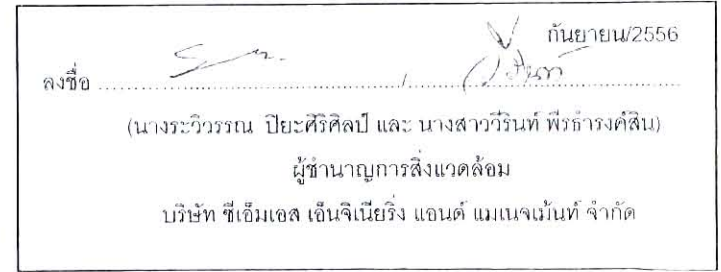 กันยายน/2556
ลงชื่อ ........................................................../..........................................................
(นางระวิวรรณ ปิยะศิริศิลป์ และ นางสาววีรินท์ พีรธำรงค์สิน)
ผู้ชำนาญการสิ่งแวดล้อม
บริษัท ซีเอ็มเอส เอ็นจิเนียริ่ง แอนด์ แมเนจเม้นท์ จำกัด